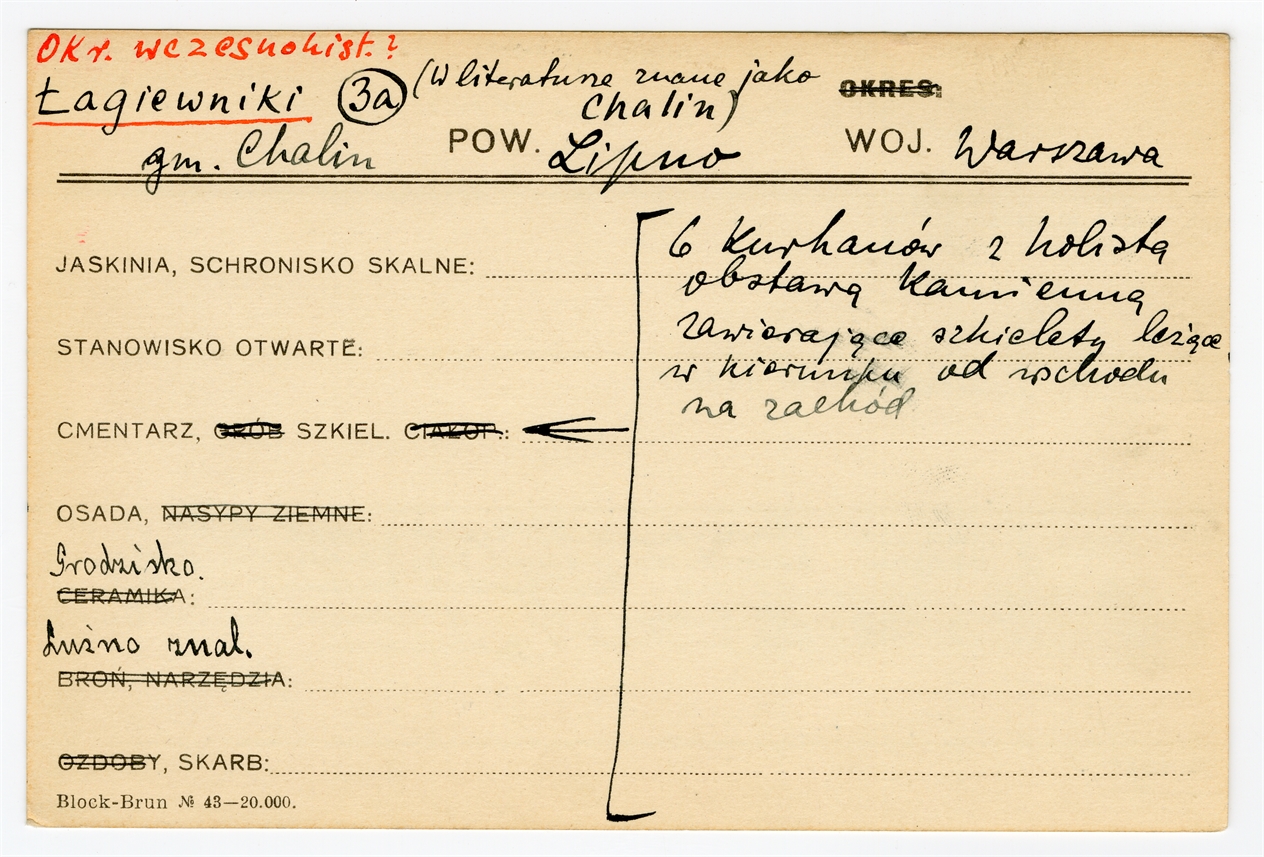 Okr. wczesnohist.?
Łagiewniki (3a) (W literaturze znane jako
Chalin)
OKRES:
gm. Chalin POW. Lipno WOJ. Warszawa
6 kurhanów z kolistą
JASKINIA, SCHRONISKO SKALNE:
obstawą kamienną
zawierające szkielety leżące
STANOWISKO OTWARTE:
w kierunku od wschodu
na zachód
CMENTARZ, GRÓB SZKIEL. CIAŁOP.:
OSADA, NASYPY ZIEMNE:
Grodzisko.
CERAMIKA:
Luźno znal.
BROŃ, NARZĘDZIA:
OZDOBY, SKARB:
Block-Brun № 43—20.000.